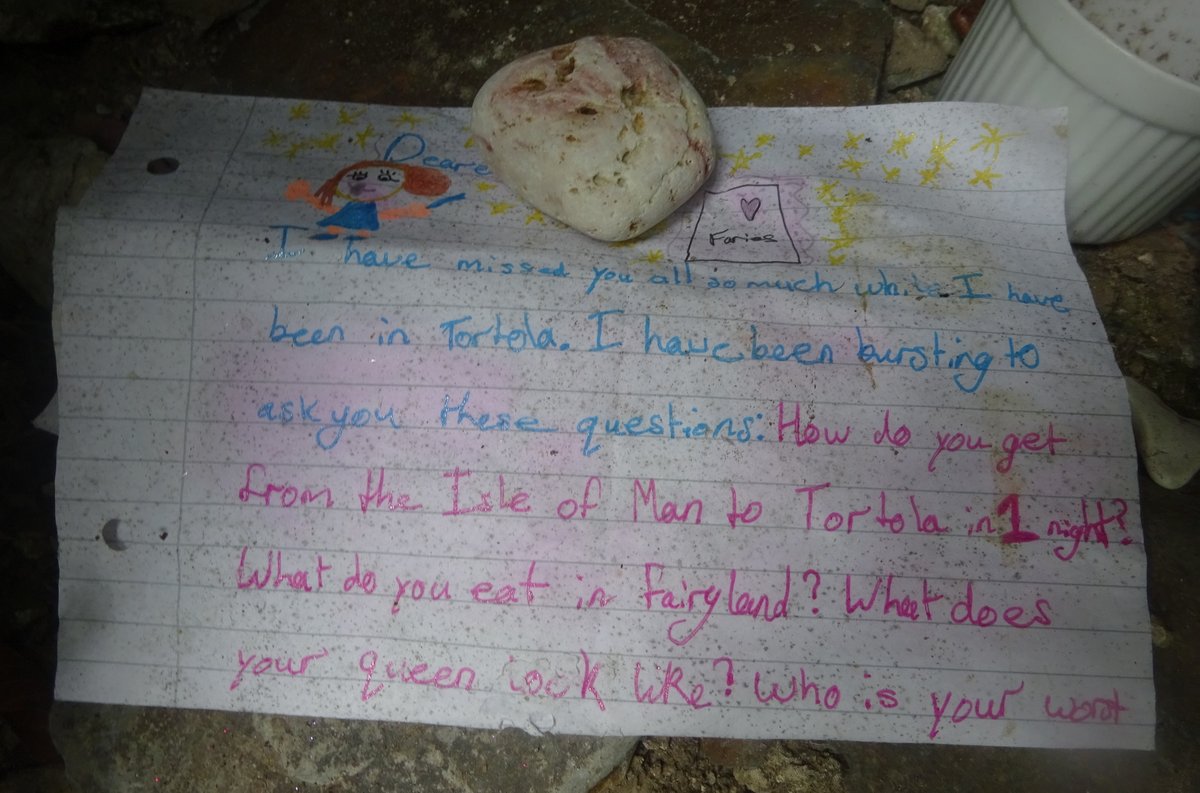 Deare
Faries
I have missed you all so much while I have
been in Tortola. I have been bursting to
ask you these questions: How do you get
from the Isle of Man to Tortola in 1 night?
What do you eat in fairyland? What does
your queen look like? Who is your worst